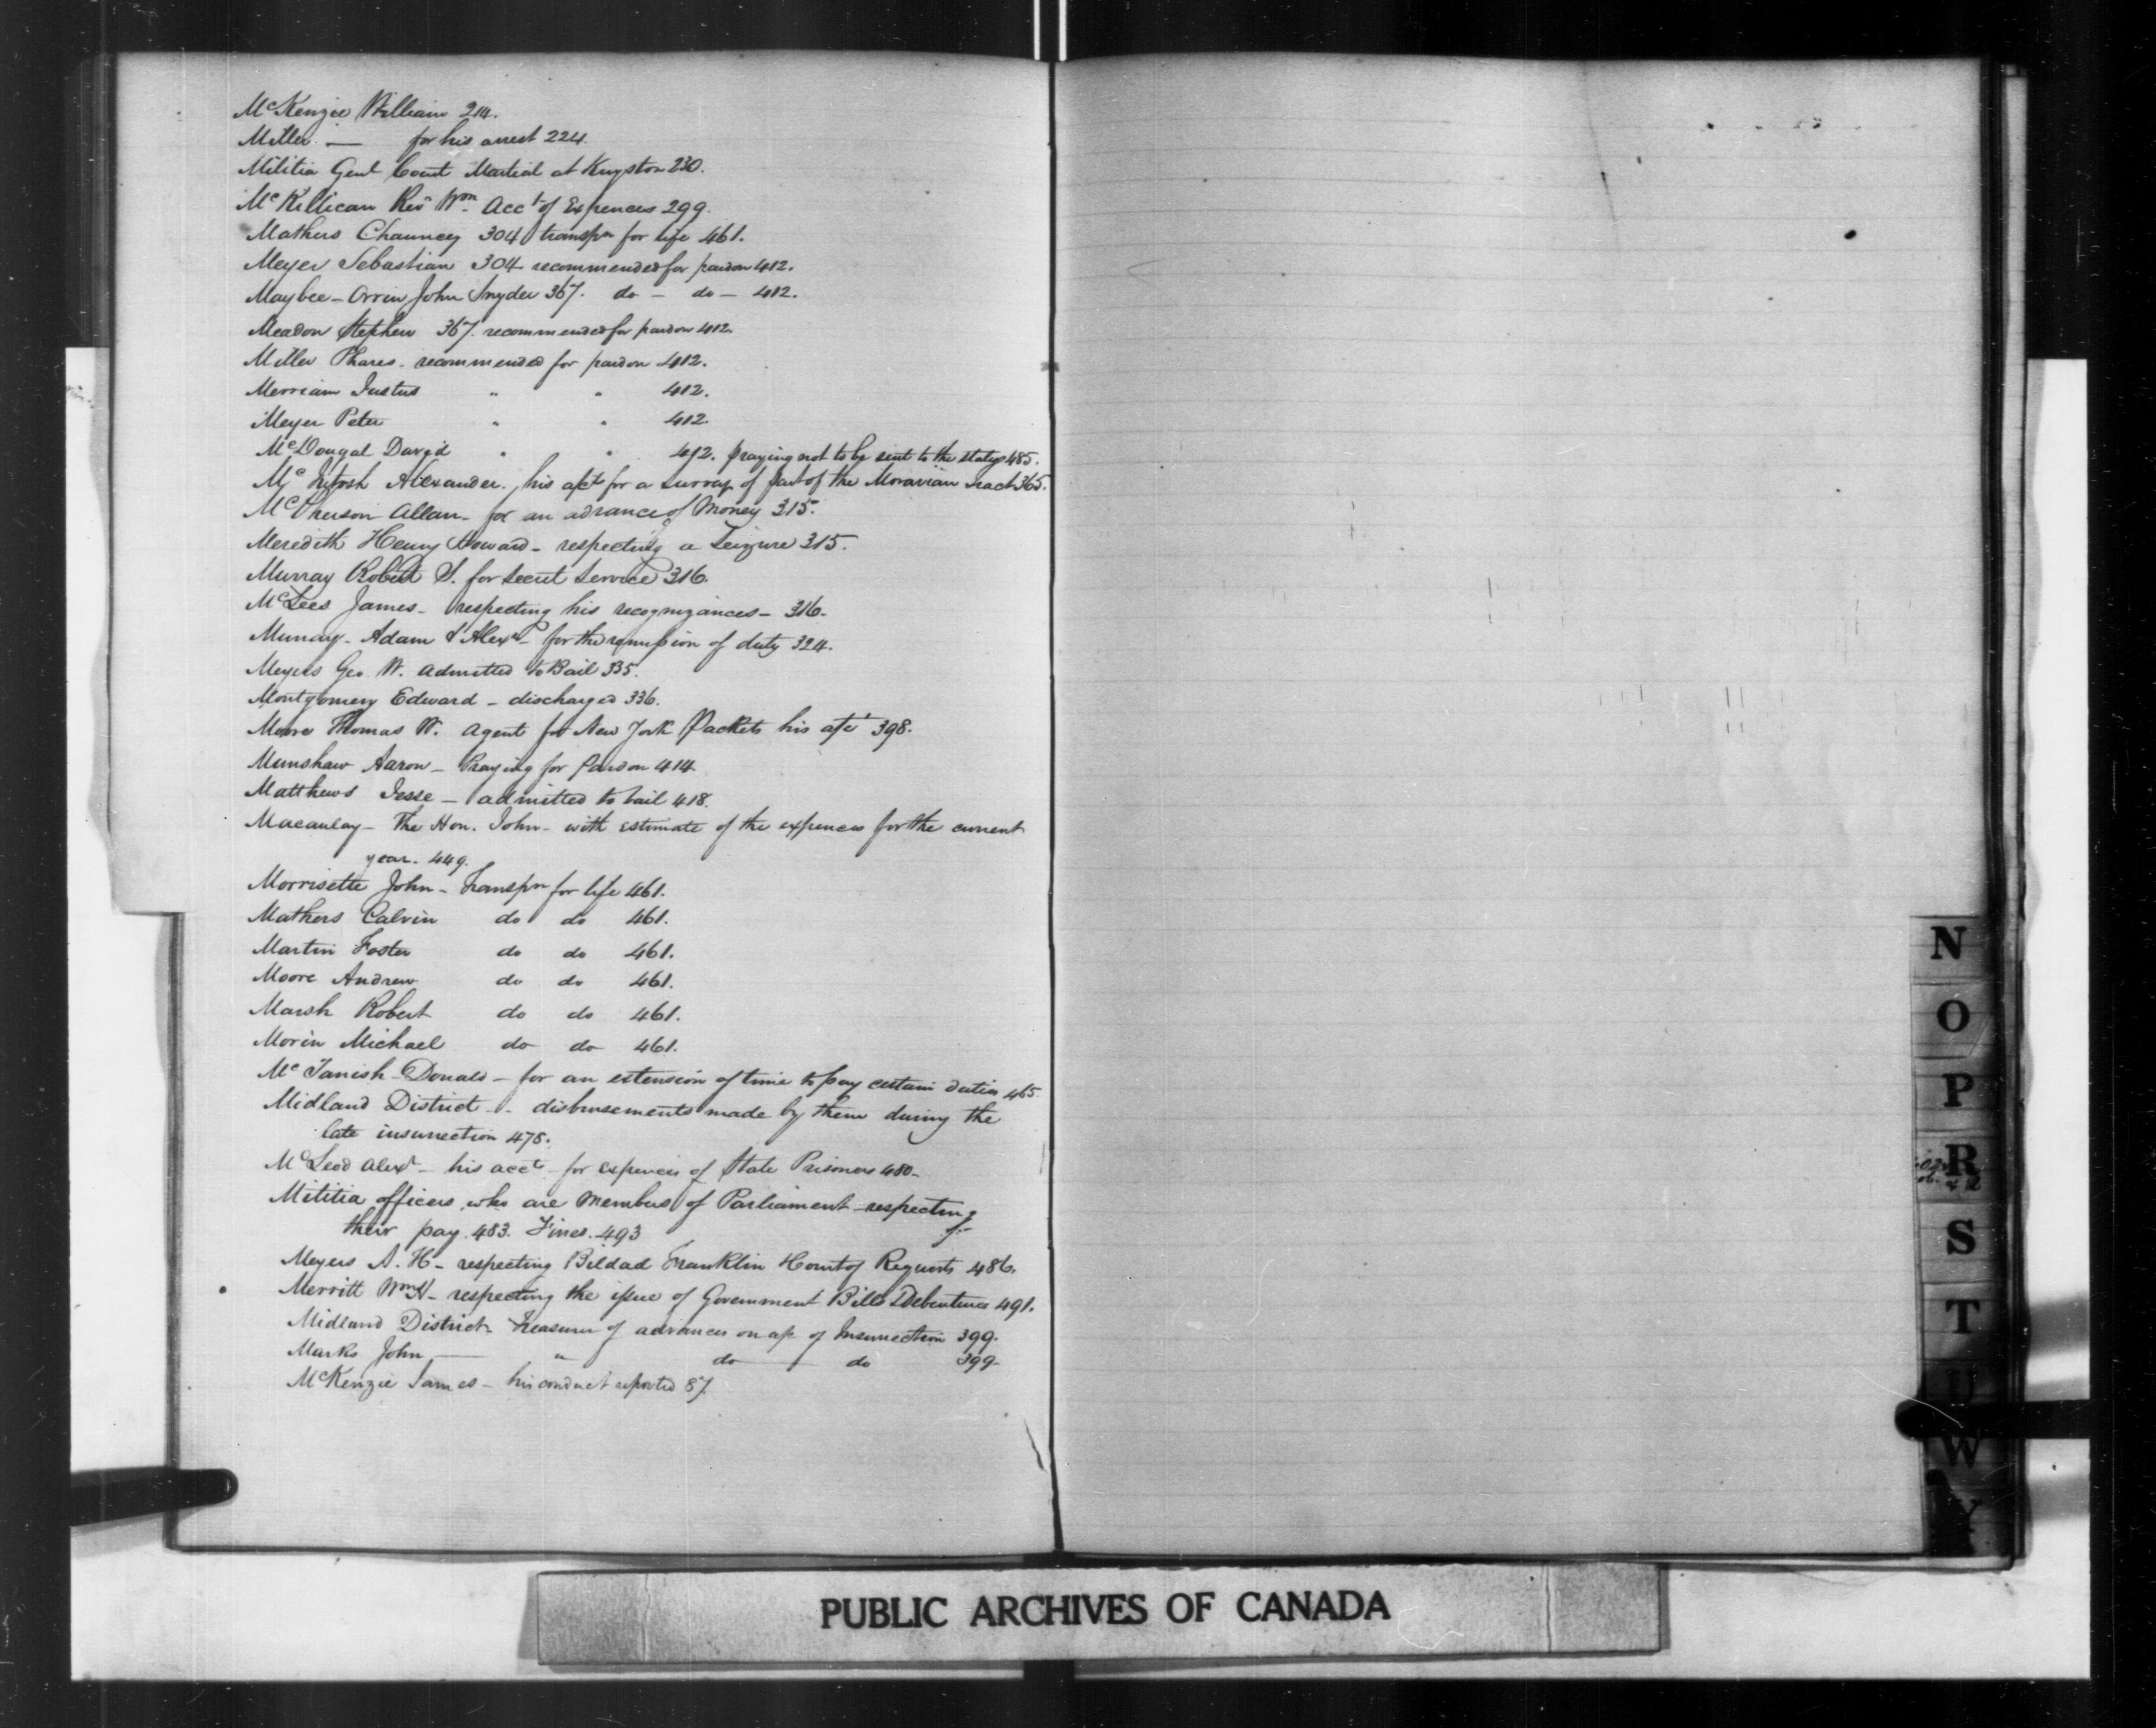 McKenzie William 214.
Miller — for his arrest 224.
Militia Genl Court Martial at Kingston 230.
McKillican Revd Wm Acct of Expences 299.
Mathers Chauncey 304 transpn for life 461.
Meyer Sebastian 304 recommended for pardon 412.
Maybee - Orrin John Snyder 367. do - do - 412.
Meadon Stephen 367. recommended for pardon 412.
Miller Phares - recommended for pardon 412.
Merriam Justus " " 412.
Meyer Peter " " 412.
McDougal David " " 412. praying not to be sent to the states 485.
McIntosh Alexander, his apt for a survey of part of the Moravian tract 365.
McPherson Allan - for an advance of Money 315.
Meredith Henry Howard - respecting a Seizure 315.
Murray Robert S. for Secret Service 316.
McLees James - respecting his recognizances - 316.
Murray - Adam & Alexr - for the remission of duty 324.
Meyers Geo. W. admitted to Bail 335.
Montgomery Edward - discharged 336.
Moore Thomas W. Agent for New York Packets his a/c 398.
Munshaw Aaron - Praying for Pardon 414.
Matthews Jesse - admitted to bail 418.
Macaulay - The Hon. John - with estimate of the expences for the current
year. 449.
Morrisette John - Transpn for life 461.
Mathers Calvin do do 461.
Martin Foster do do 461.
Moore Andrew do do 461.
Marsh Robert do do 461.
Morin Michael do do 461.
McTanish - Donald - for an extension of time to pay certain duties 465.
Midland District - disbursements made by them during the
late insurrection 478.
McLeod Alexr - his acct - for expences of State Prisoners 480 -
Militia officers, who are members of Parliament - respecting
their pay. 483. Fines. 493
Meyers A. H - respecting Bildad Franklin & Court of Requests 486.
Merritt Wm H - respecting the issue of Government Bills & Debentures 491.
Midland District - Treasurer of advances on a/c of Insurrection 399.
Marks John — " do do 399.
McKenzie James - his conduct reported 87.
N
O
P
R
S
T
U
W
Y
PUBLIC ARCHIVES OF CANADA